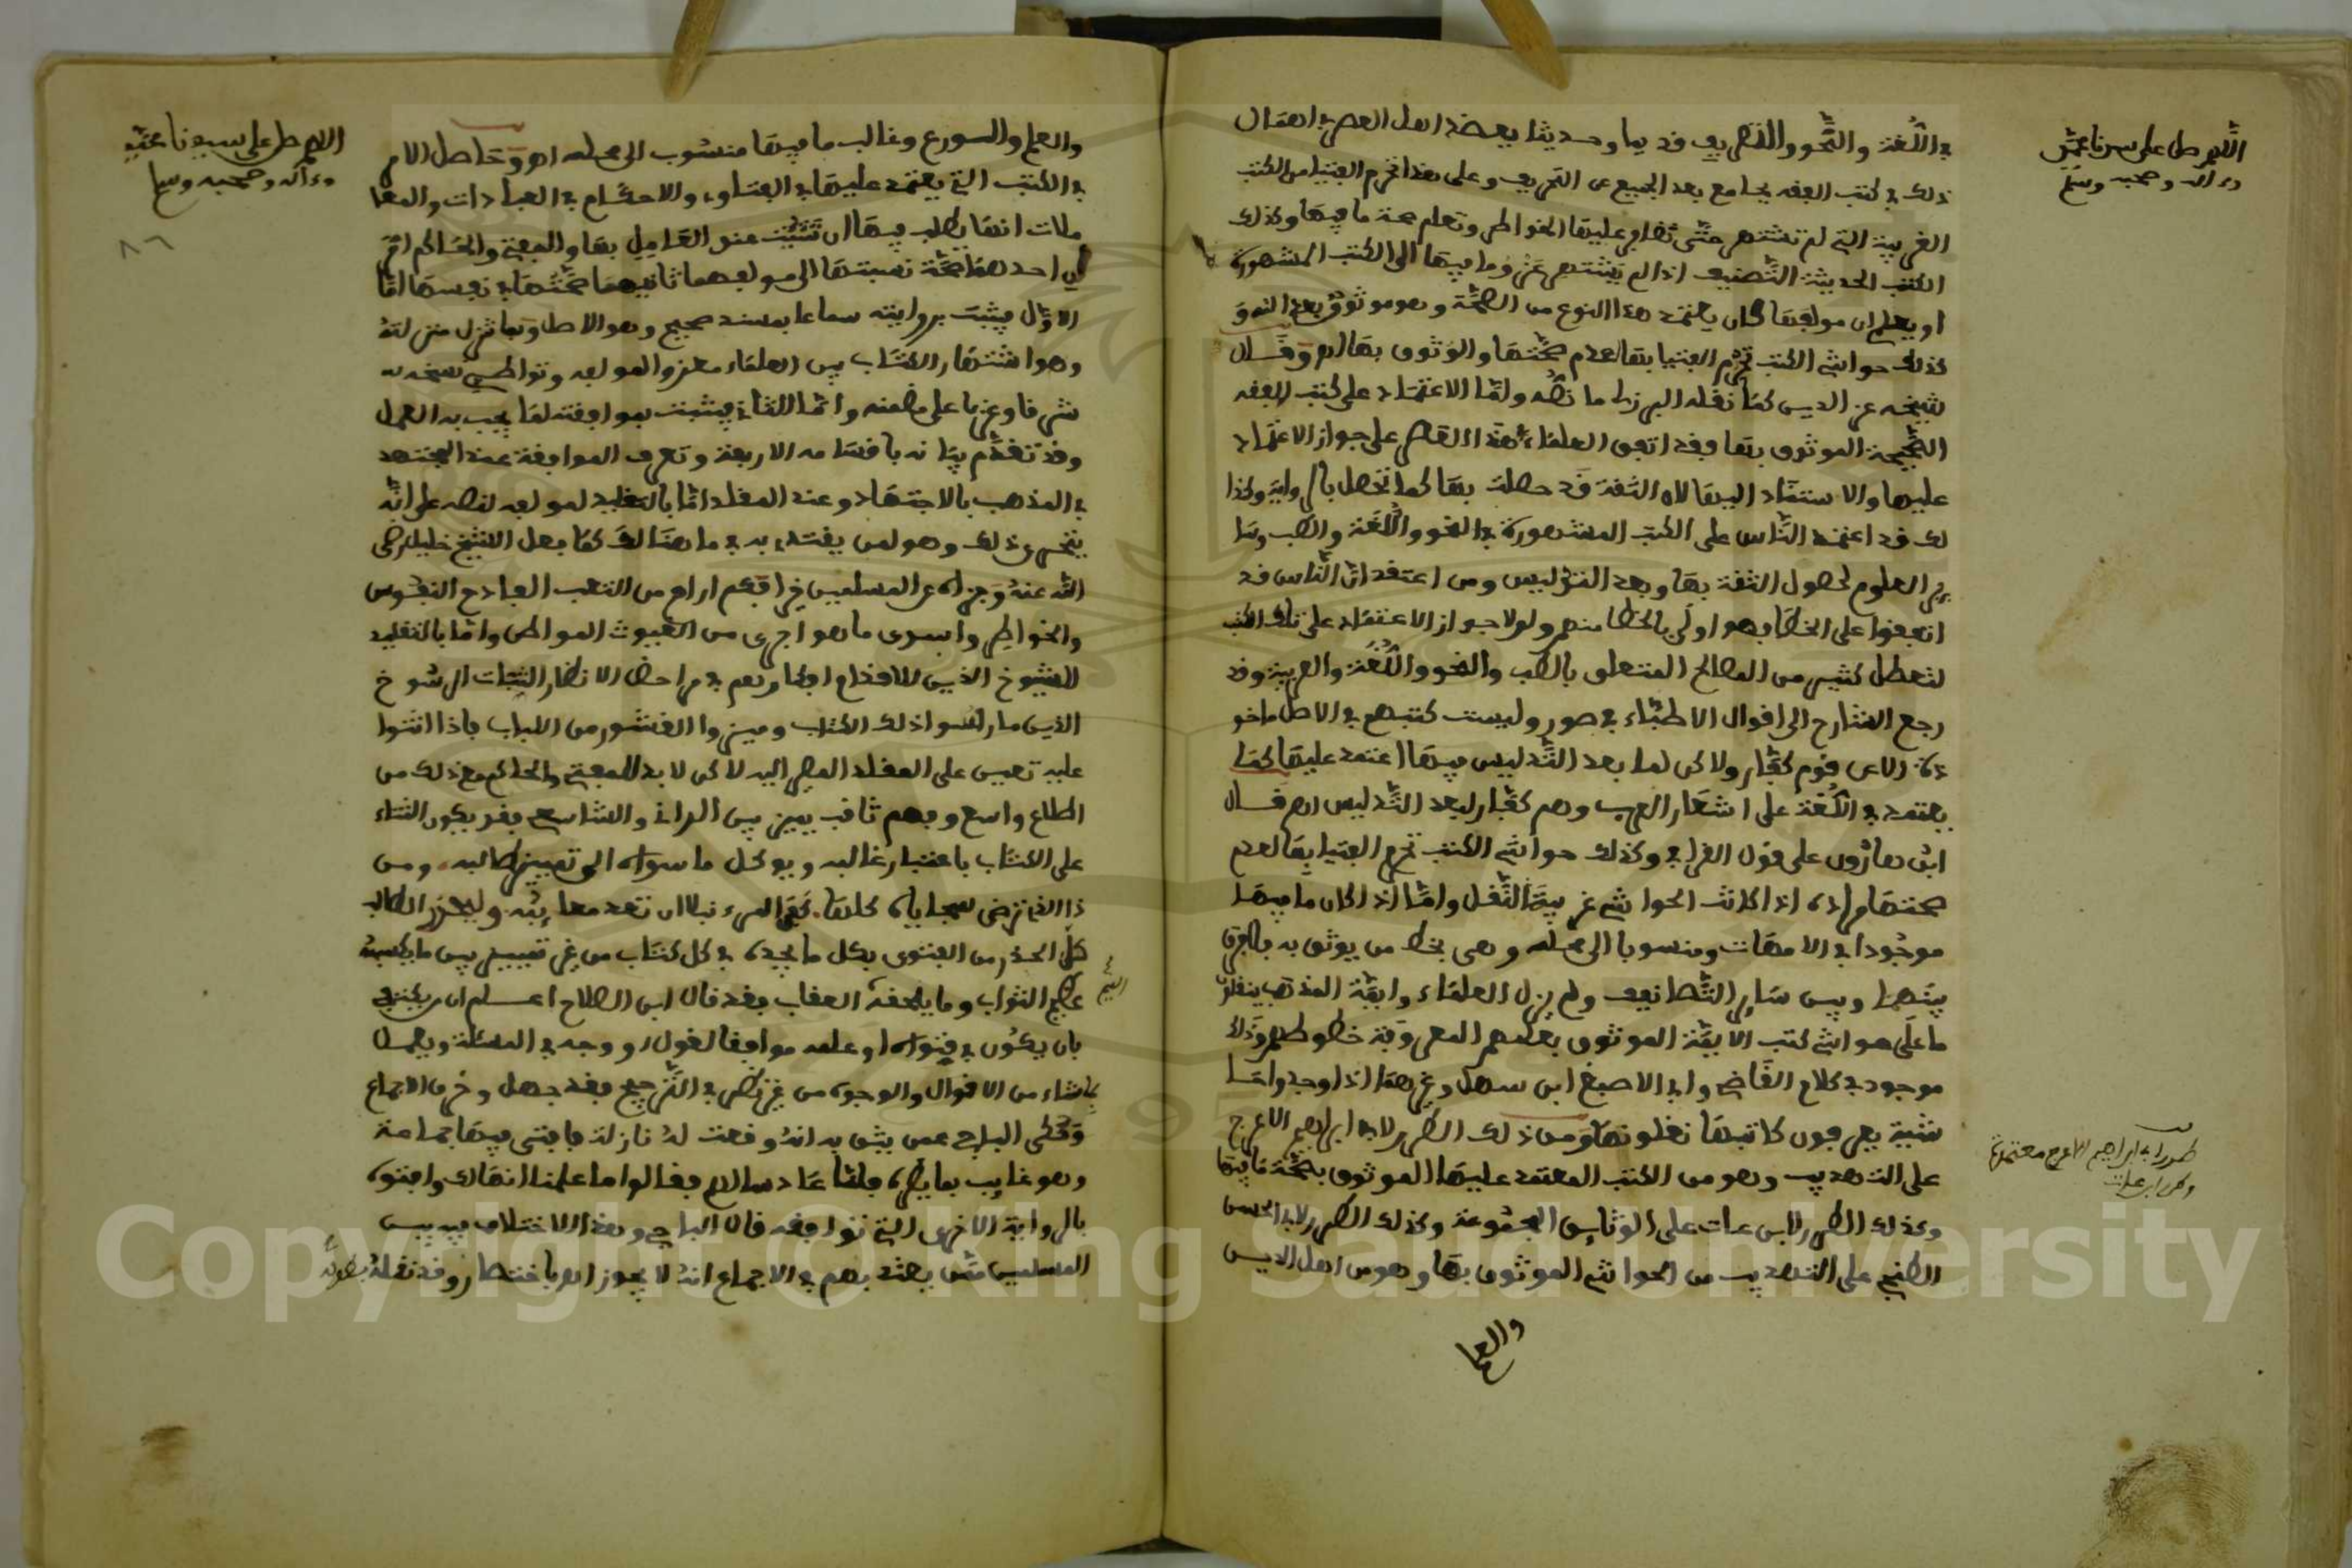 اللهم صل على سيدنا محمد
وءاله وصحبه وسلم
في اللغة والنحو والتصريف قديما وحديثا بعضد اهل العصر في اهمال
ذلك في كتب الفقه بجامع بعد الجميع عن التحريف وعلى هذا تحرم الفتيا من الكتب
الغريبة التي لم تشتهر حتى تتظافر عليها الخواطر وتعلم صحة ما فيها وكذلك
الكتب الحديثة التصنيف اذا لم يشتهر عزو ما فيها الى الكتب المشهورة
او يعلم ان مولفها كان يعتمد هذا النوع من الصحة وهو موثوق بعدالته و
كذلك حواشي الكتب تحرم الفتيا بها لعدم صحتها والوثوق بها اهـ وقال
شيخه عز الدين كما نقله البرزلي ما نصه واما الاعتماد على كتب الفقه
الصحيحة الموثوق بها فقد اتفق العلماء في هذا العصر على جواز الاعتماد
عليها والاستناد اليها لان الثقة قد حصلت بها كما تحصل بالرواية وكذا
لك قد اعتمد الناس على الكتب المشهورة في النحو واللغة والطب وسا
ير العلوم لحصول الثقة بها وبعد التدليس ومن اعتقد ان الناس قد
اتفقوا على الخطا فهو اولى بالخطا منهم ولولا جواز الاعتماد على تلك الكتب
لتعطل كثير من المصالح المتعلق بالطب والنحو واللغة والعربية وقد
رجع الشارح الى اقوال الاطباء في صور وليست كتبهم في الاصل ماخو
ذة الا عن قوم كفار ولاكن لما بعد التدليس فيها اعتمد عليها كما
يعتمد في اللغة على اشعار العرب وهم كفار لبعد التدليس اهـ قال
ابن هارون على قول القرافي وكذلك حواشي الكتب تحرم الفتيا بها لعدم
صحتها مراده اذا كانت الحواشي غريبة النقل واما اذا كان ما فيها
موجودا في الامهات ومنسوبا الى محله وهي بخط من يوثق به فلا فرق
بينها وبين ساير التصانيف ولم يزل العلماء وايمة المذهب ينقلون
ما على حواشي كتب الايمة الموثوق بعلمهم المعروفة خطوطهم وذلك
موجود في كلام القاضي وابي الاصبغ ابن سهل وغيرهما اذا وجدوا حا
شية يعرفون كاتبها نقلوها ومن ذلك الطرر لابي ابراهيم الاعرج
على التهذيب وهو من الكتب المعتمد عليها الموثوق بصحة ما فيها
وكذلك الطرر لابن عات على الوثايق المجموعة وكذلك الطرر لابي الحسن
الطنجي على التهذيب من الحواشي الموثوق بها وهو من اهل الدين
والعلم
طرر ابي ابراهيم الاعرج معتمدة
وكذا ابن عات
اللهم صل على سيدنا محمد
وءاله وصحبه وسلم
٨٦
والعلم والورع وغالب ما فيها منسوب الى محله اهـ وحاصل الامر
في الكتب التي يعتمد عليها في الفتاوي والاحكام في العبادات والمعا
ملات انها يطلب فيها ان تثبت عند العامل بها والمفتي والحاكم امر
ان احدهما صحة نسبتها الى مولفها ثانيهما صحتها في نفسها اما
الاول فيثبت بروايته سماعا بسند صحيح وهو الاصل وبما نزل منزلته
وهو اشتهار الكتاب بين العلماء معزوا لمولفه وتواطي نسخه
شرقا وغربا على مضمنه واما الثاني فيثبت بموافقته لما يجب به العمل
وقد تقدم بيانه باقسامه الاربعة وتعرف الموافقة عند المجتهد
في المذهب بالاجتهاد وعند المقلد اما بالتقليد لمولفه لنصه على انه
يتحرى ذلك وهو لمن يقتدى به في ما هنالك كما فعل الشيخ خليل رضي
الله عنه وجزاه عن المسلمين خيرا فكم اراح من التعب الفادح النفوس
والخواطر واسدى ما هو اجرى من الغيوث المواطر واما بالتقليد
للشيوخ الذين للاقدام افكارهم في مراحض الانظار الثبات الرسوخ
الذين مارسوا ذلك الكتاب وميزوا القشور من اللباب فاذا اثنوا
عليه تعين على المقلد المصير اليه لاكن لا بد للمفتي والحاكم مع ذلك من
اطلاع واسع وفهم ثاقب يميز بين الداني والشاسع فقد يكون الثناء
على الكتاب باعتبار غالبه ويوكل ما سواه الى تمييز طالبه ومن
ذا الذي ترضى سجاياه كلها كفى المرء نبلا ان تعد معايبه وليحذر الطالب
كل الحذر من الفتوى بكل ما يجده في كل كتاب من غير تمييز بين ما يكسبه
عظيم الثواب وما يلحقه العقاب فقد قال ابن الصلاح اعلم ان من يكتفي
بان يكون في فتواه او علمه موافقا لقول او وجه في المسئلة ويعمل
بما شاء من الاقوال والوجوه من غير نظر في الترجيح فقد جهل وخرق الاجماع
وحكى الباجي عمن يثق به انه وقعت له نازلة فافتى فيها جماعة
وهو غايب بما يضره فلما عاد سالهم فقالوا ما علمنا انها لك وافتوه
بالرواية الاخرى التي توافقه قال الباجي وهذا لا اختلاف فيه بين
المسلمين ممن يعتد بهم في الاجماع انه لا يجوز اهـ باختصار وقد نقله بطوله
Copyright © King Saud University